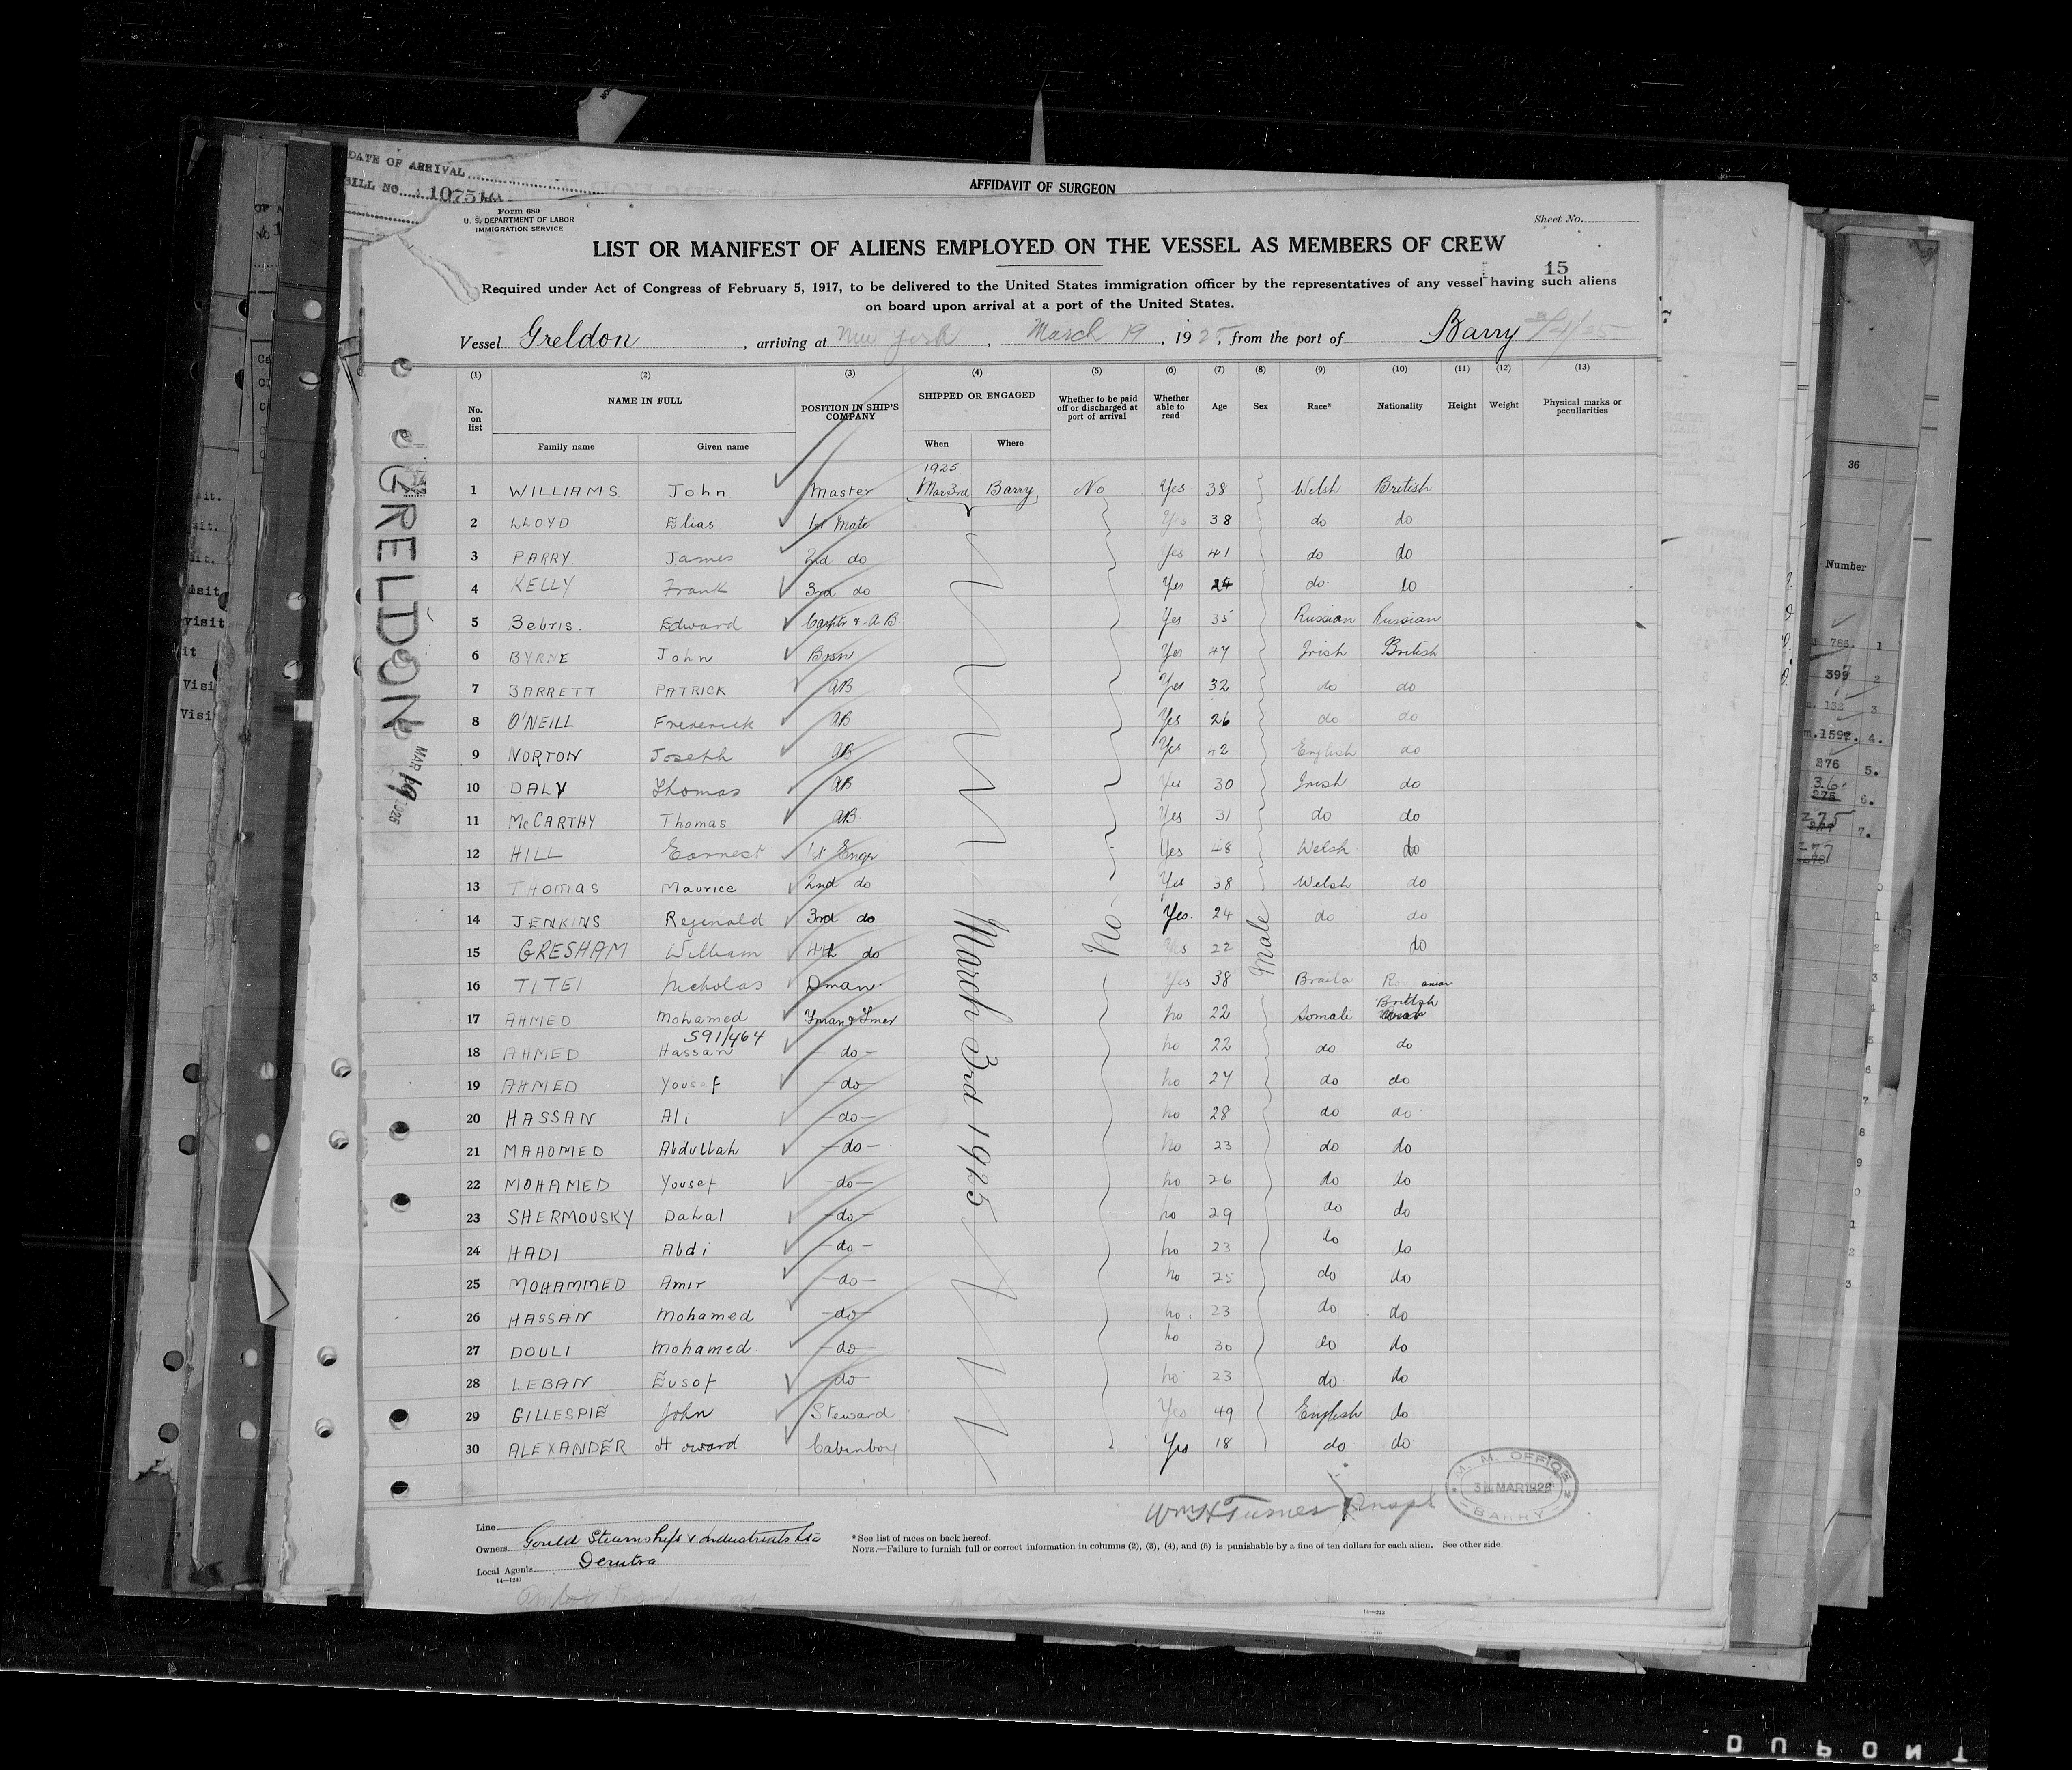 DATE OF ARRIVAL
BILL NO. 10751
AFFIDAVIT OF SURGEON
Form 680
U. S. DEPARTMENT OF LABOR
IMMIGRATION SERVICE
Sheet No.
LIST OR MANIFEST OF ALIENS EMPLOYED ON THE VESSEL AS MEMBERS OF CREW
15
Required under Act of Congress of February 5, 1917, to be delivered to the United States immigration officer by the representatives of any vessel having such aliens
on board upon arrival at a port of the United States.
Vessel Greldon, arriving at New York, March 19, 1925, from the port of Barry 3/4/25
(1) (2) (3) (4) (5) (6) (7) (8) (9) (10) (11) (12) (13)
No. on list NAME IN FULL POSITION IN SHIP'S COMPANY SHIPPED OR ENGAGED Whether to be paid off or discharged at port of arrival Whether able to read Age Sex Race* Nationality Height Weight Physical marks or peculiarities
Family name Given name When Where
1925
1 WILLIAMS John Master Mar 3rd Barry No Yes 38 Welsh British
2 LLOYD Elias 1st Mate Yes 38 do do
3 PARRY James 2nd do Yes 41 do do
4 KELLY Frank 3rd do Yes 24 do do
5 Bebris. Edward Carptr & AB Yes 35 Russian Russian
6 BYRNE John Bosn Yes 47 Irish British
7 BARRETT PATRICK AB Yes 32 do do
8 O'NEILL Frederick AB Yes 26 do do
9 NORTON Joseph AB Yes 42 English do
10 DALY Thomas AB Yes 30 Irish do
11 McCARTHY Thomas AB Yes 31 do do
12 HILL Earnest 1st Enger Yes 48 Welsh do
13 THOMAS Maurice 2nd do Yes 38 Welsh do
14 JENKINS Reginald 3rd do Yes. 24 do do
15 GRESHAM William 4th do Yes 22 do
16 TITEI Nicholas Dman Yes 38 Braila
17 AHMED Mohamed Fman & Tmer no 22 Somali British
S91/464
18 AHMED Hassan do no 22 do do
19 AHMED Yousef do no 27 do do
20 HASSAN Ali do no 28 do do
21 MAHOMED Abdullah do no 23 do do
22 MOHAMED Yousef do no 26 do do
23 SHERMOUSKY Dahal do no 29 do do
24 HADI Abdi do no 23 do do
25 MOHAMMED Amir do no 25 do do
26 HASSAN Mohamed do no 23 do do
27 DOULI Mohamed do no 30 do do
28 LEBAN Eusof do no 23 do do
29 GILLESPIE John Steward Yes 49 English do
30 ALEXANDER Howard Cabinboy Yes 18 do do
March 3rd 1925
No
Male
GRELDON
MAR 19 1925
M. M. OFFICE
MAR 192
BARRY
Wm H Turner Inspt
Line
Owners Gould Steamships & Industrials Ltd
Local Agents Derutra
14—1240
*See list of races on back hereof.
NOTE.—Failure to furnish full or correct information in columns (2), (3), (4), and (5) is punishable by a fine of ten dollars for each alien. See other side.
36
Number
786. 1
399 2
132 3
4.
276 5.
6.
275 7.
277
Visit
DUPONT